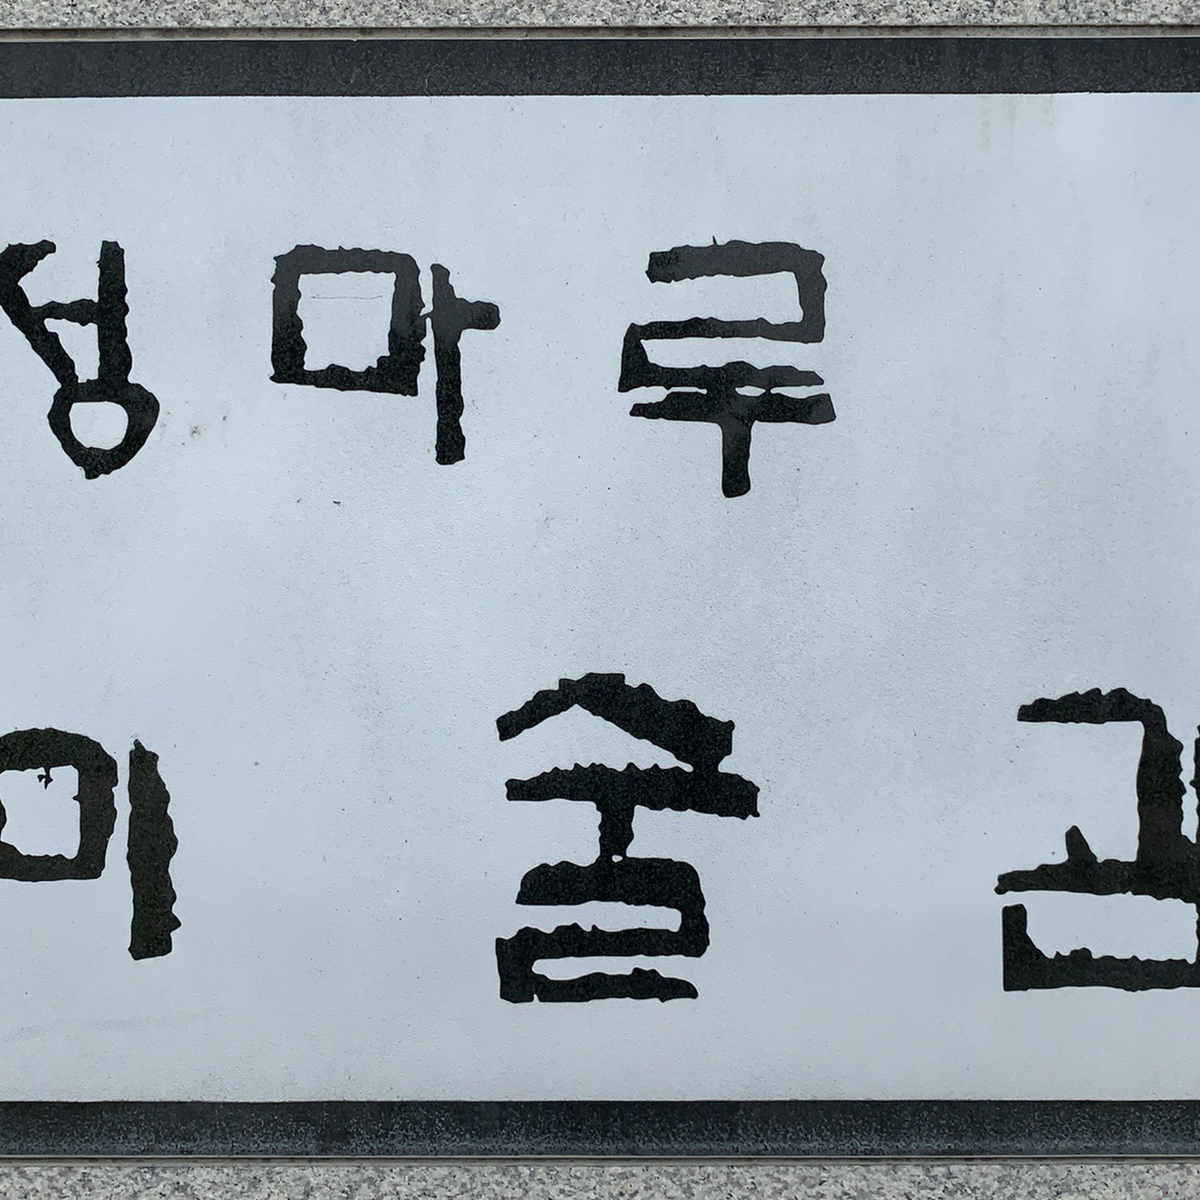 성마루
미술관